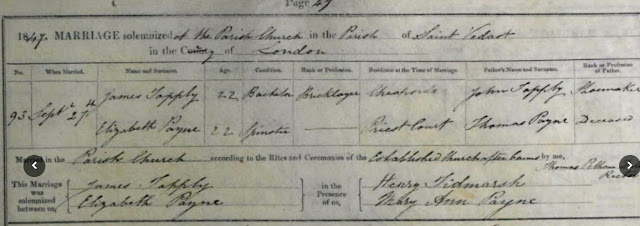 Page 47
1847. MARRIAGE solemnized at the Parish Church in the Parish of Saint Vedast
in the County of London
No. When Married. Name and Surname. Age. Condition. Rank or Profession. Residence at the Time of Marriage. Father's Name and Surname. Rank or Profession of Father.
93 Septr 27th James Tapply 22 Bachelor Bricklayer Cheapside John Tapply Shoemaker
Elizabeth Payne 22 Spinster Priest Court Thomas Payne Deceased
Married in the Parish Church according to the Rites and Ceremonies of the Established Church after banns by me,
Thomas
This Marriage was solemnized between us, James Tapply Elizabeth Payne in the Presence of us, Henry Tidmarsh Mary Ann Payne